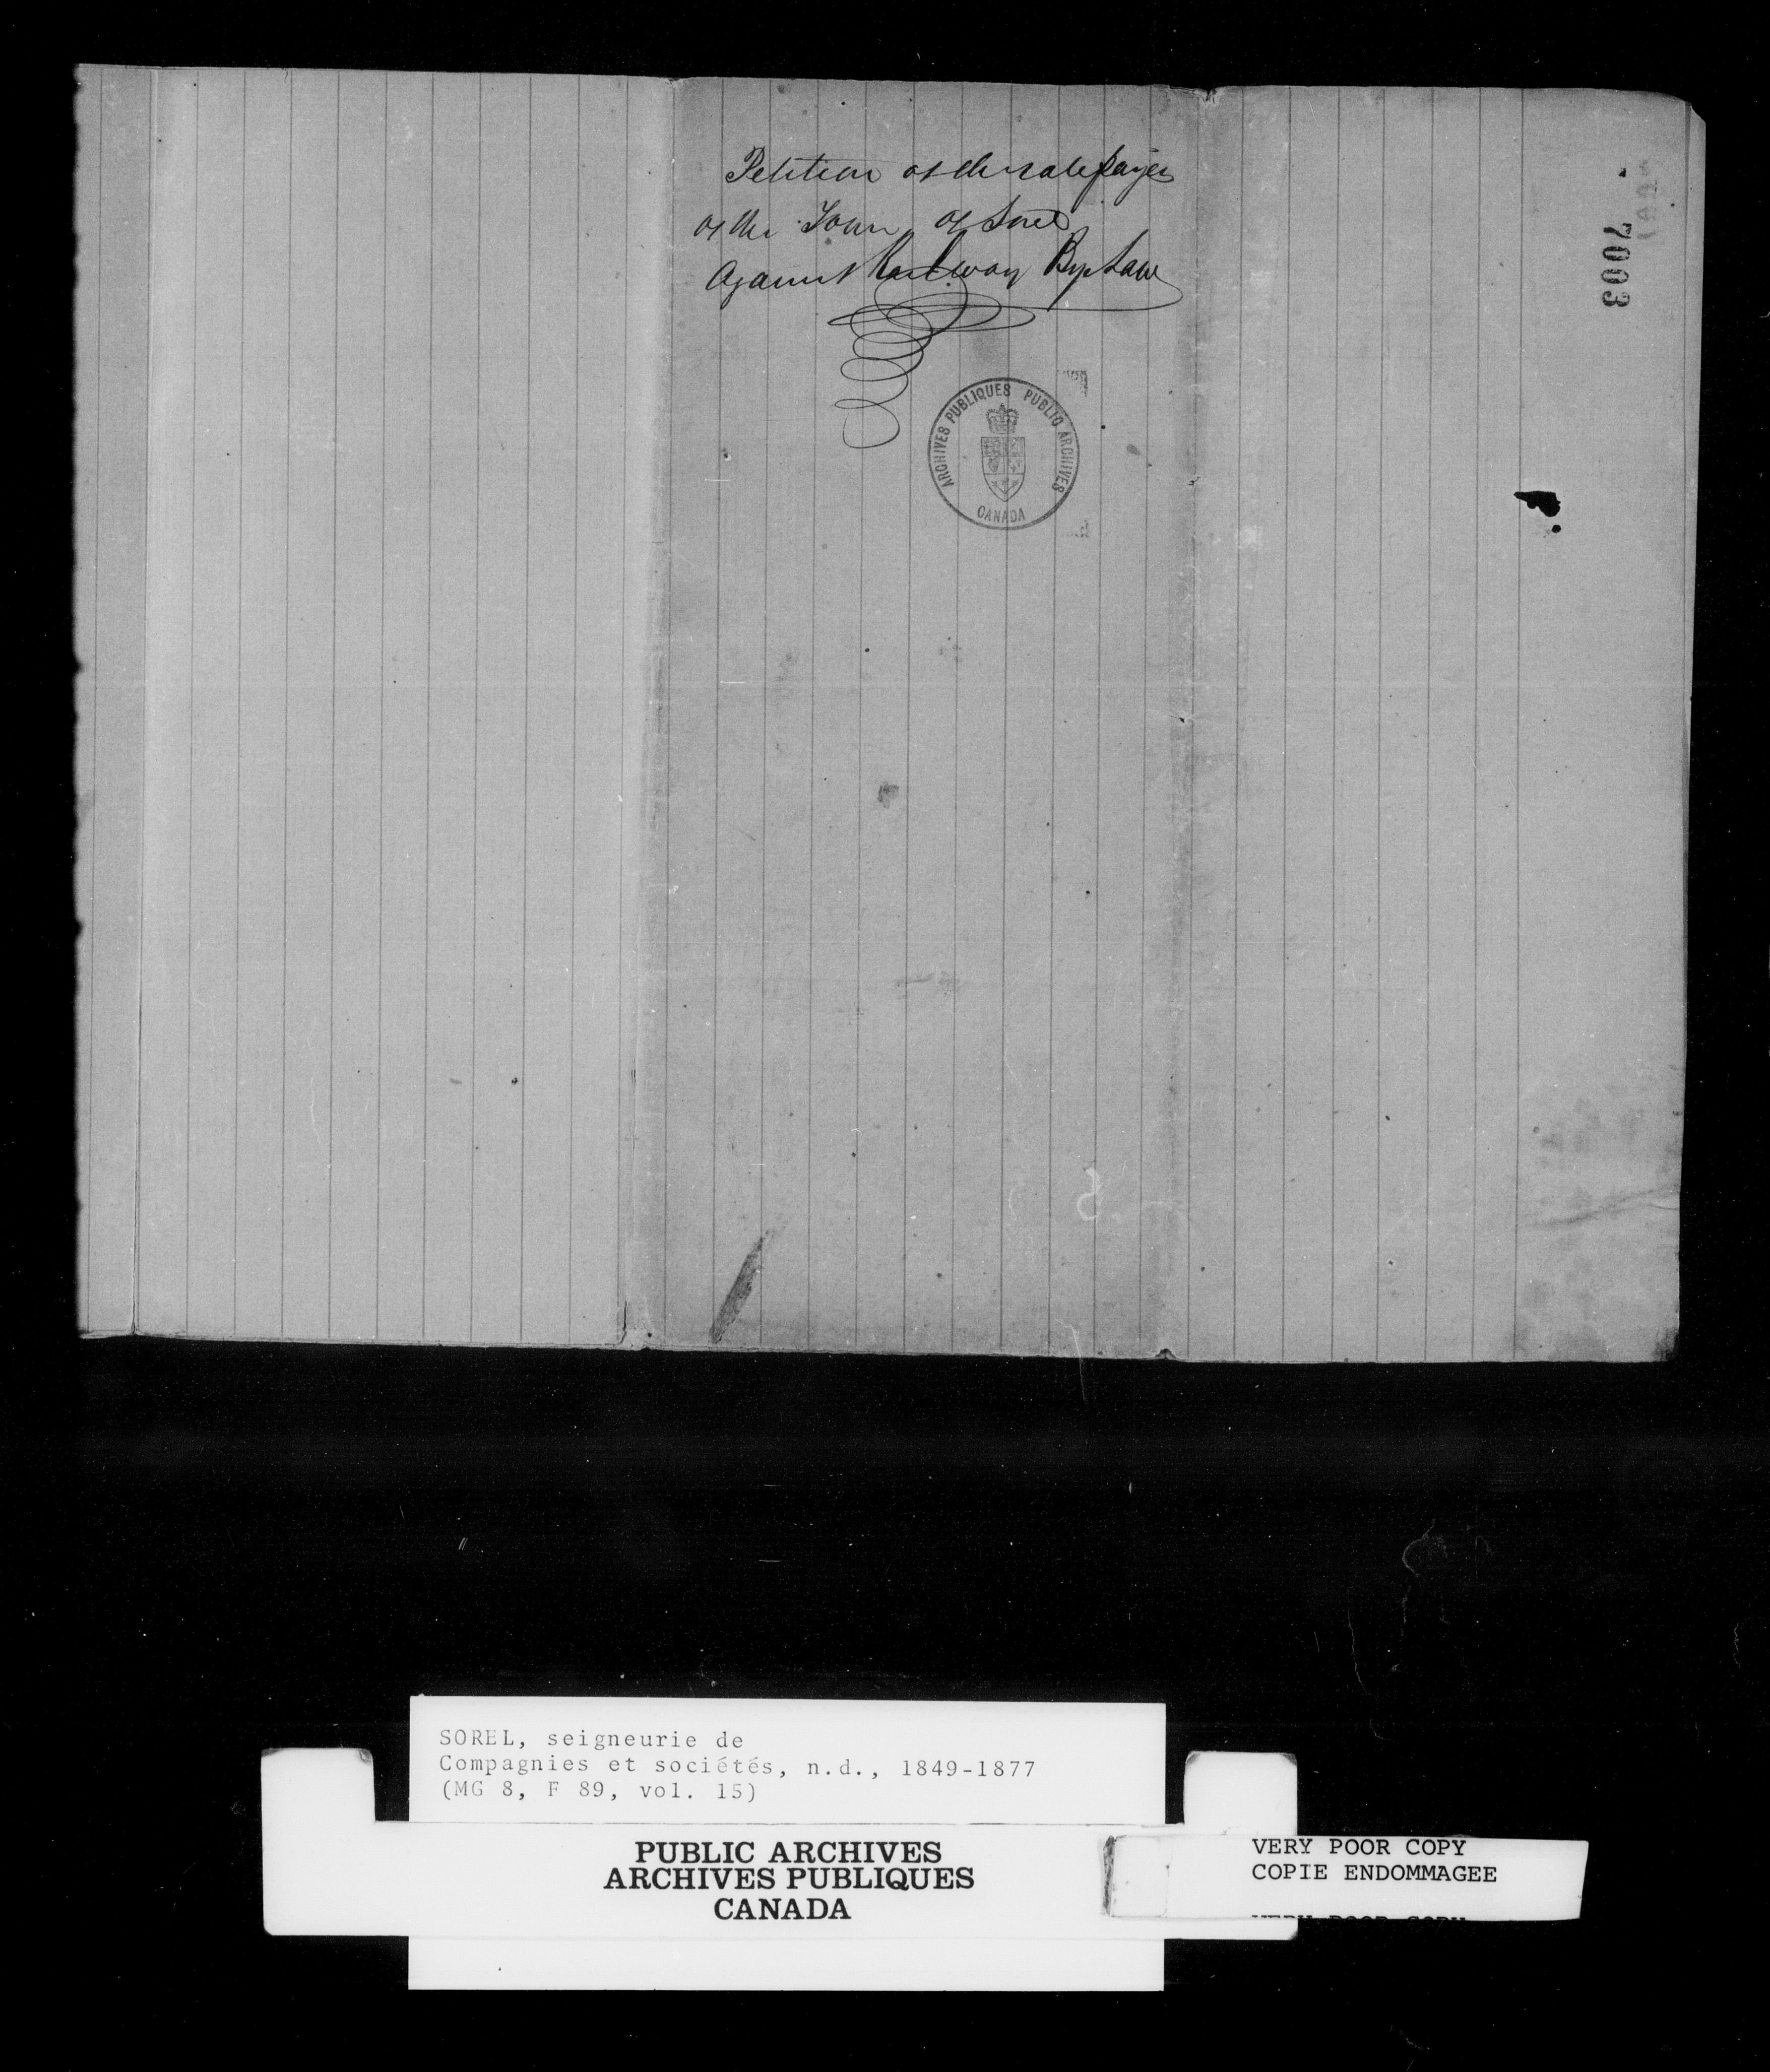 Petition of the ratepayers
of the Town of Sorel
Against Railway By Law
7003
ARCHIVES PUBLIQUES PUBLIC ARCHIVES
CANADA
SOREL, seigneurie de
Compagnies et sociétés, n.d., 1849-1877
(MG 8, F 89, vol. 15)
PUBLIC ARCHIVES
ARCHIVES PUBLIQUES
CANADA
VERY POOR COPY
COPIE ENDOMMAGEE
VERY POOR COPY